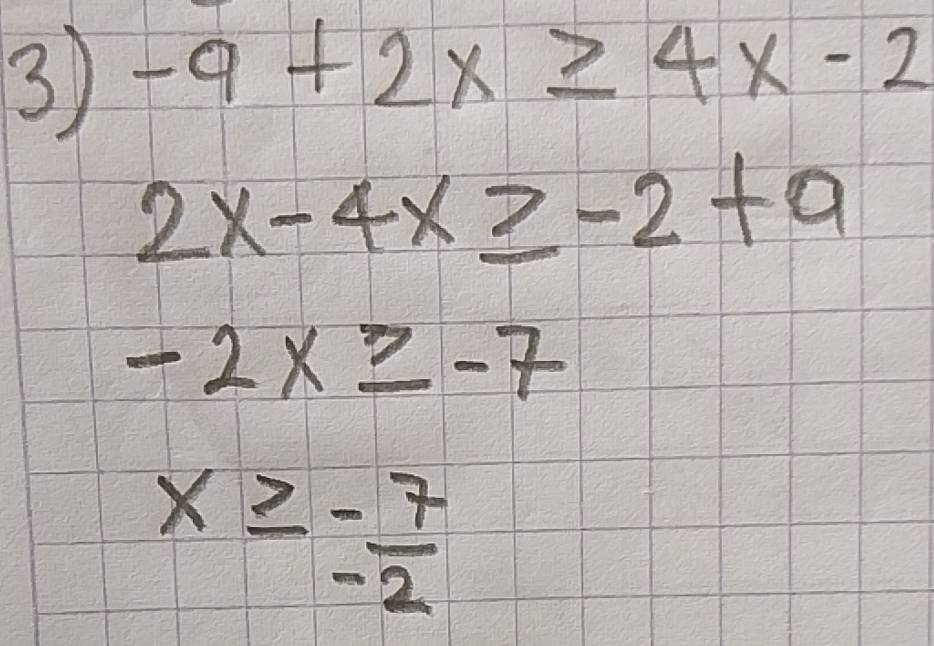 3) -9 + 2x ≥ 4x - 2
2x - 4x ≥ -2 + 9
-2x ≥ -7
x ≥ -7/-2